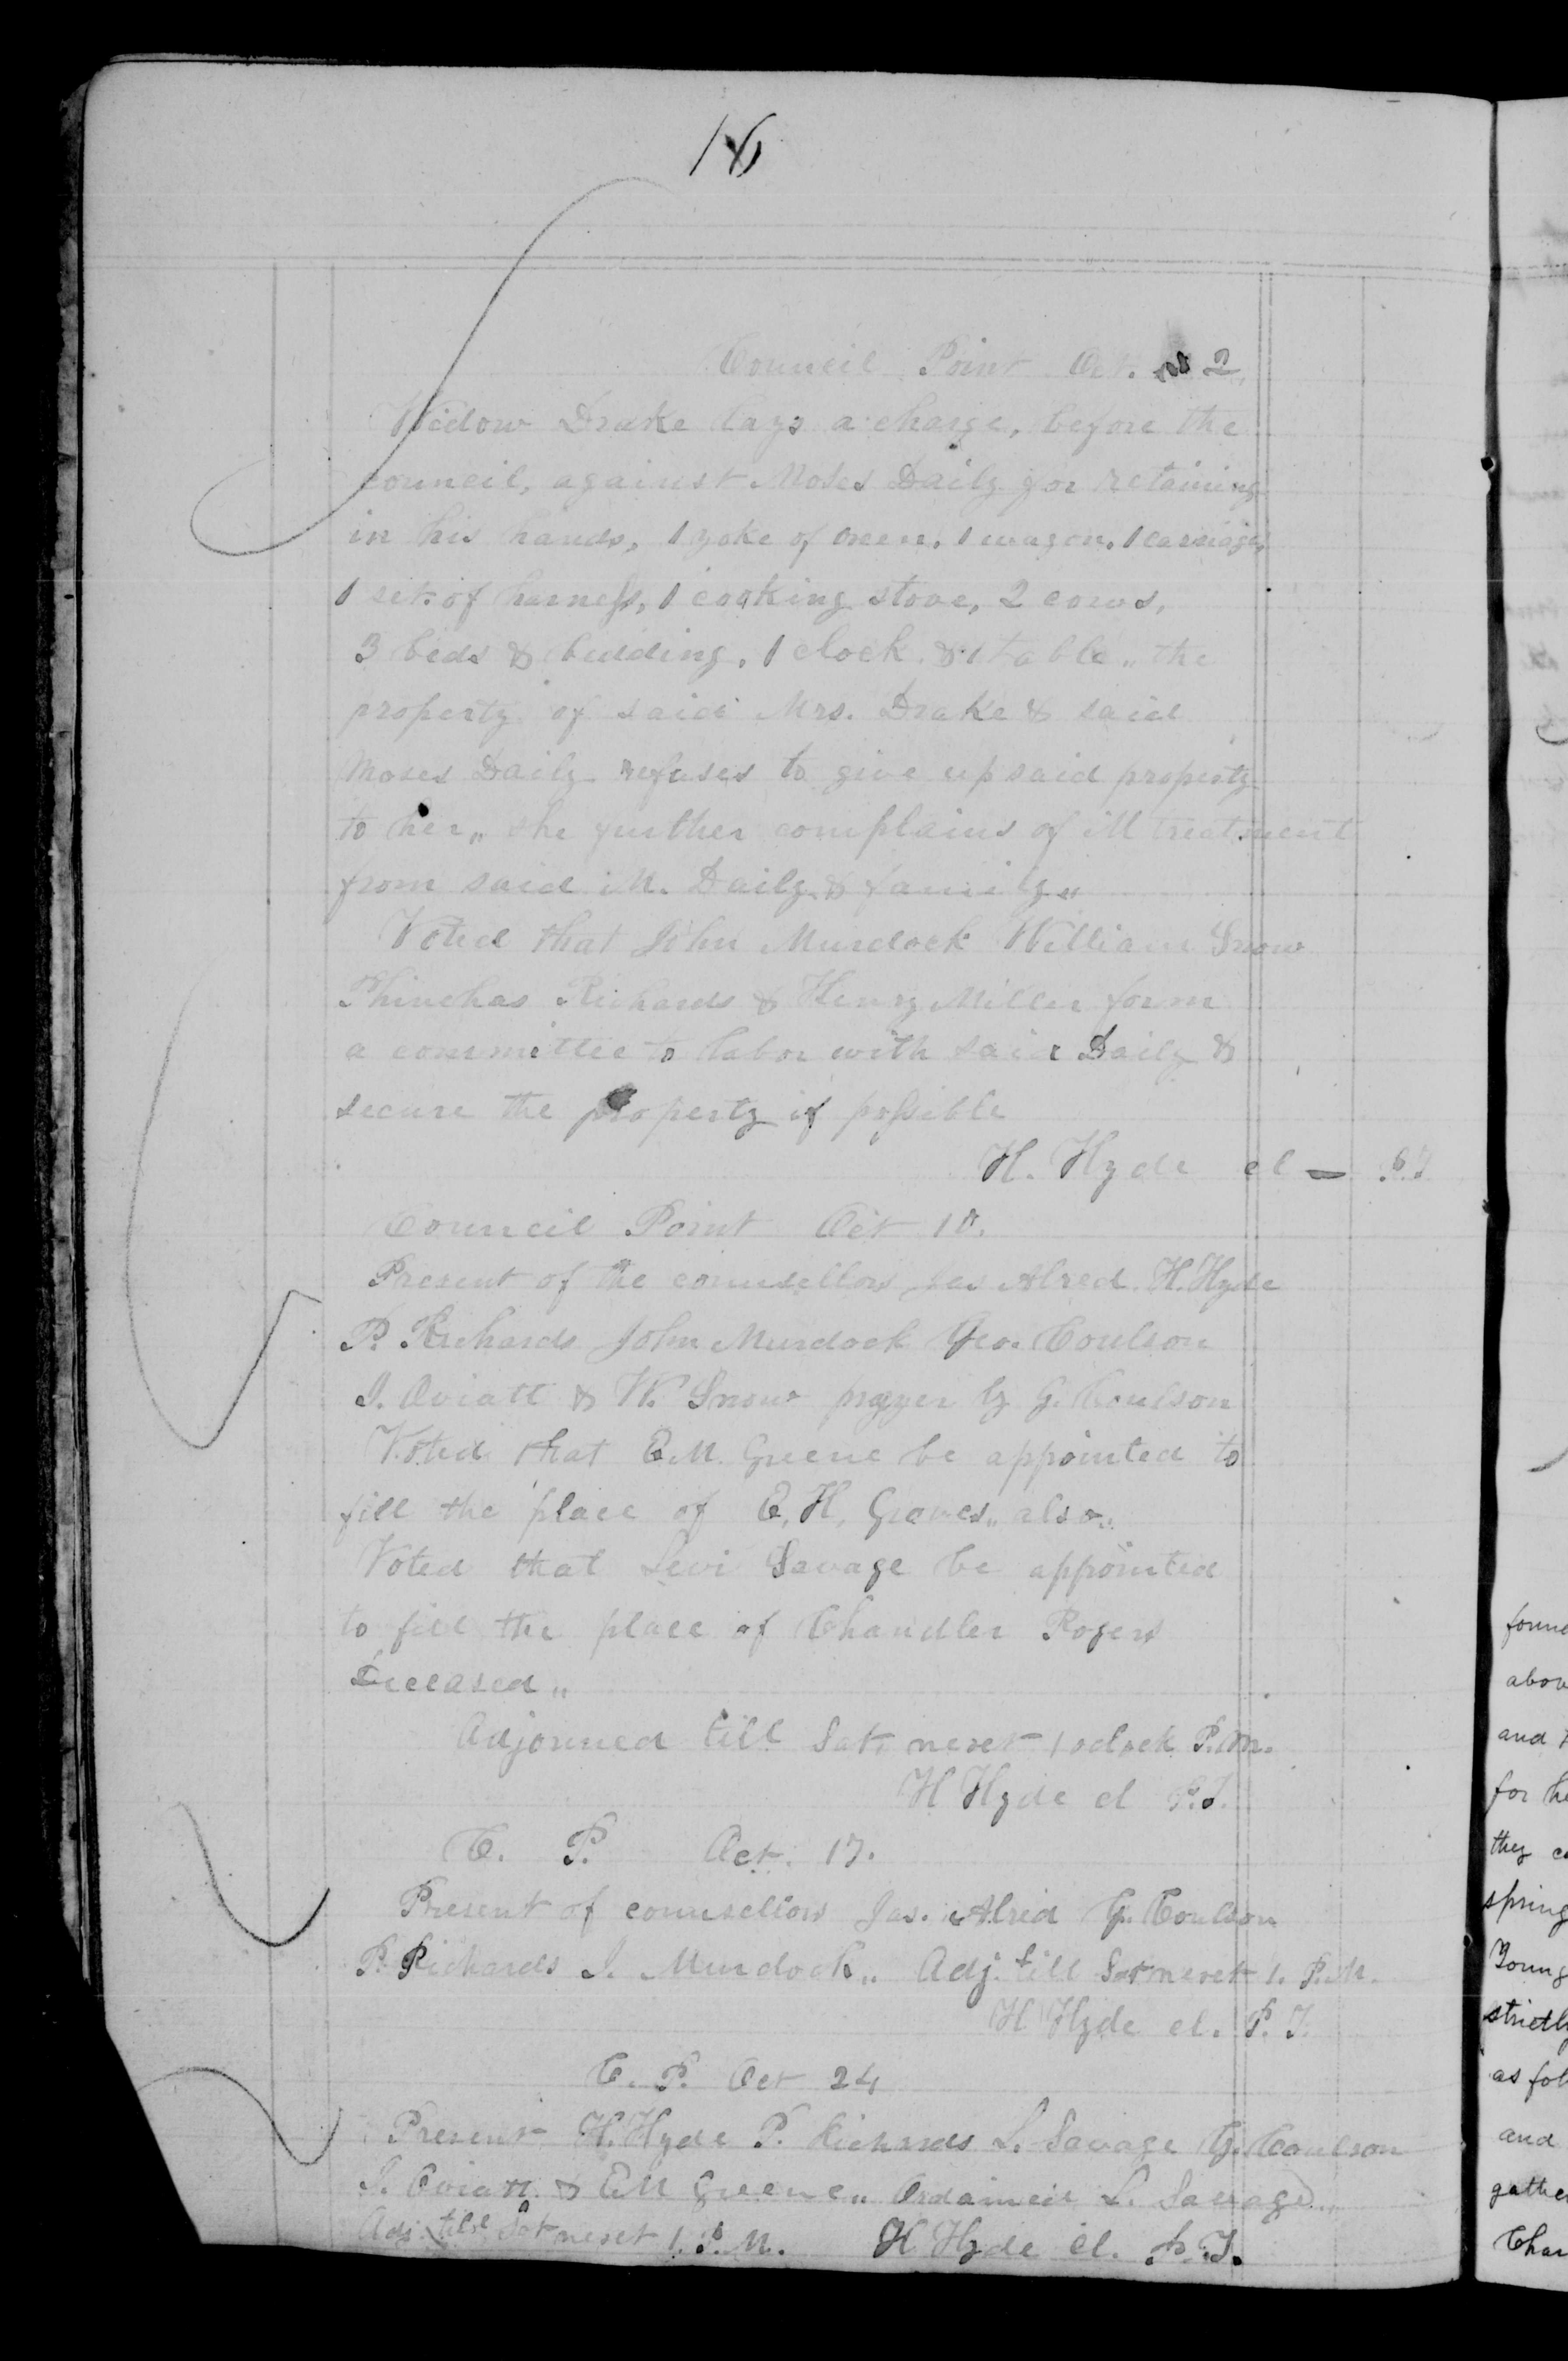 16
Council Point Oct. 2.
Widow Drake lays a charge, before the
council, against Moses Daily for retaining
in his hands, 1 yoke of oxen, 1 wagon, 1 carriage,
1 set of harness, 1 cooking stove, 2 cows,
3 beds & bedding, 1 clock & 1 table,, the
property of said Mrs. Drake & said
Moses Daily refuses to give up said property
to her,, she further complains of ill treatment
from said M. Daily & family,,
Voted that John Murdock William Snow
Phinehas Richards & Henry Miller form
a committee to labor with said Daily &
secure the property if possible
H. Hyde cl — P.T.
Council Point Oct 10.
Present of the counsellors Jas Alred H. Hyde
P. Richards John Murdock Geo. Coulson
I. Oviatt & W. Snow prayer by G. Coulson
Voted that E.M. Greene be appointed to
fill the place of E. H. Groves,, also,,
Voted that Levi Savage be appointed
to fill the place of Chandler Rogers
deceased,,
Adjourned till Sat. next 1 oclock P.M.
H Hyde cl P.T.
C. P. Oct. 17.
Present of counsellors Jas. Alred G. Coulson
P. Richards J. Murdock,, Adj. till Sat next 1. P.M.
H Hyde cl. P. T.
C. P. Oct 24
Present H. Hyde P. Richards L. Savage G. Coulson
I. Oviatt & EM Greene,, Ordained L. Savage,,
Adj. till Sat next 1. P.M. H Hyde cl. P.T.
forme
abov
and
for he
they
spring
Young
strictly
as fol
and
gather
Char